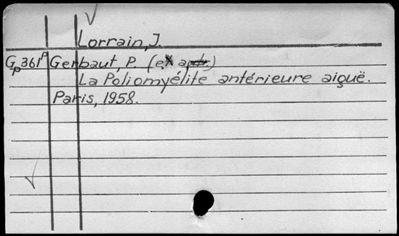 Lorrain, J.
Gp 361P Gerbaut, P. (ex
La Poliomyélite antérieure aiguë.
Paris, 1958.